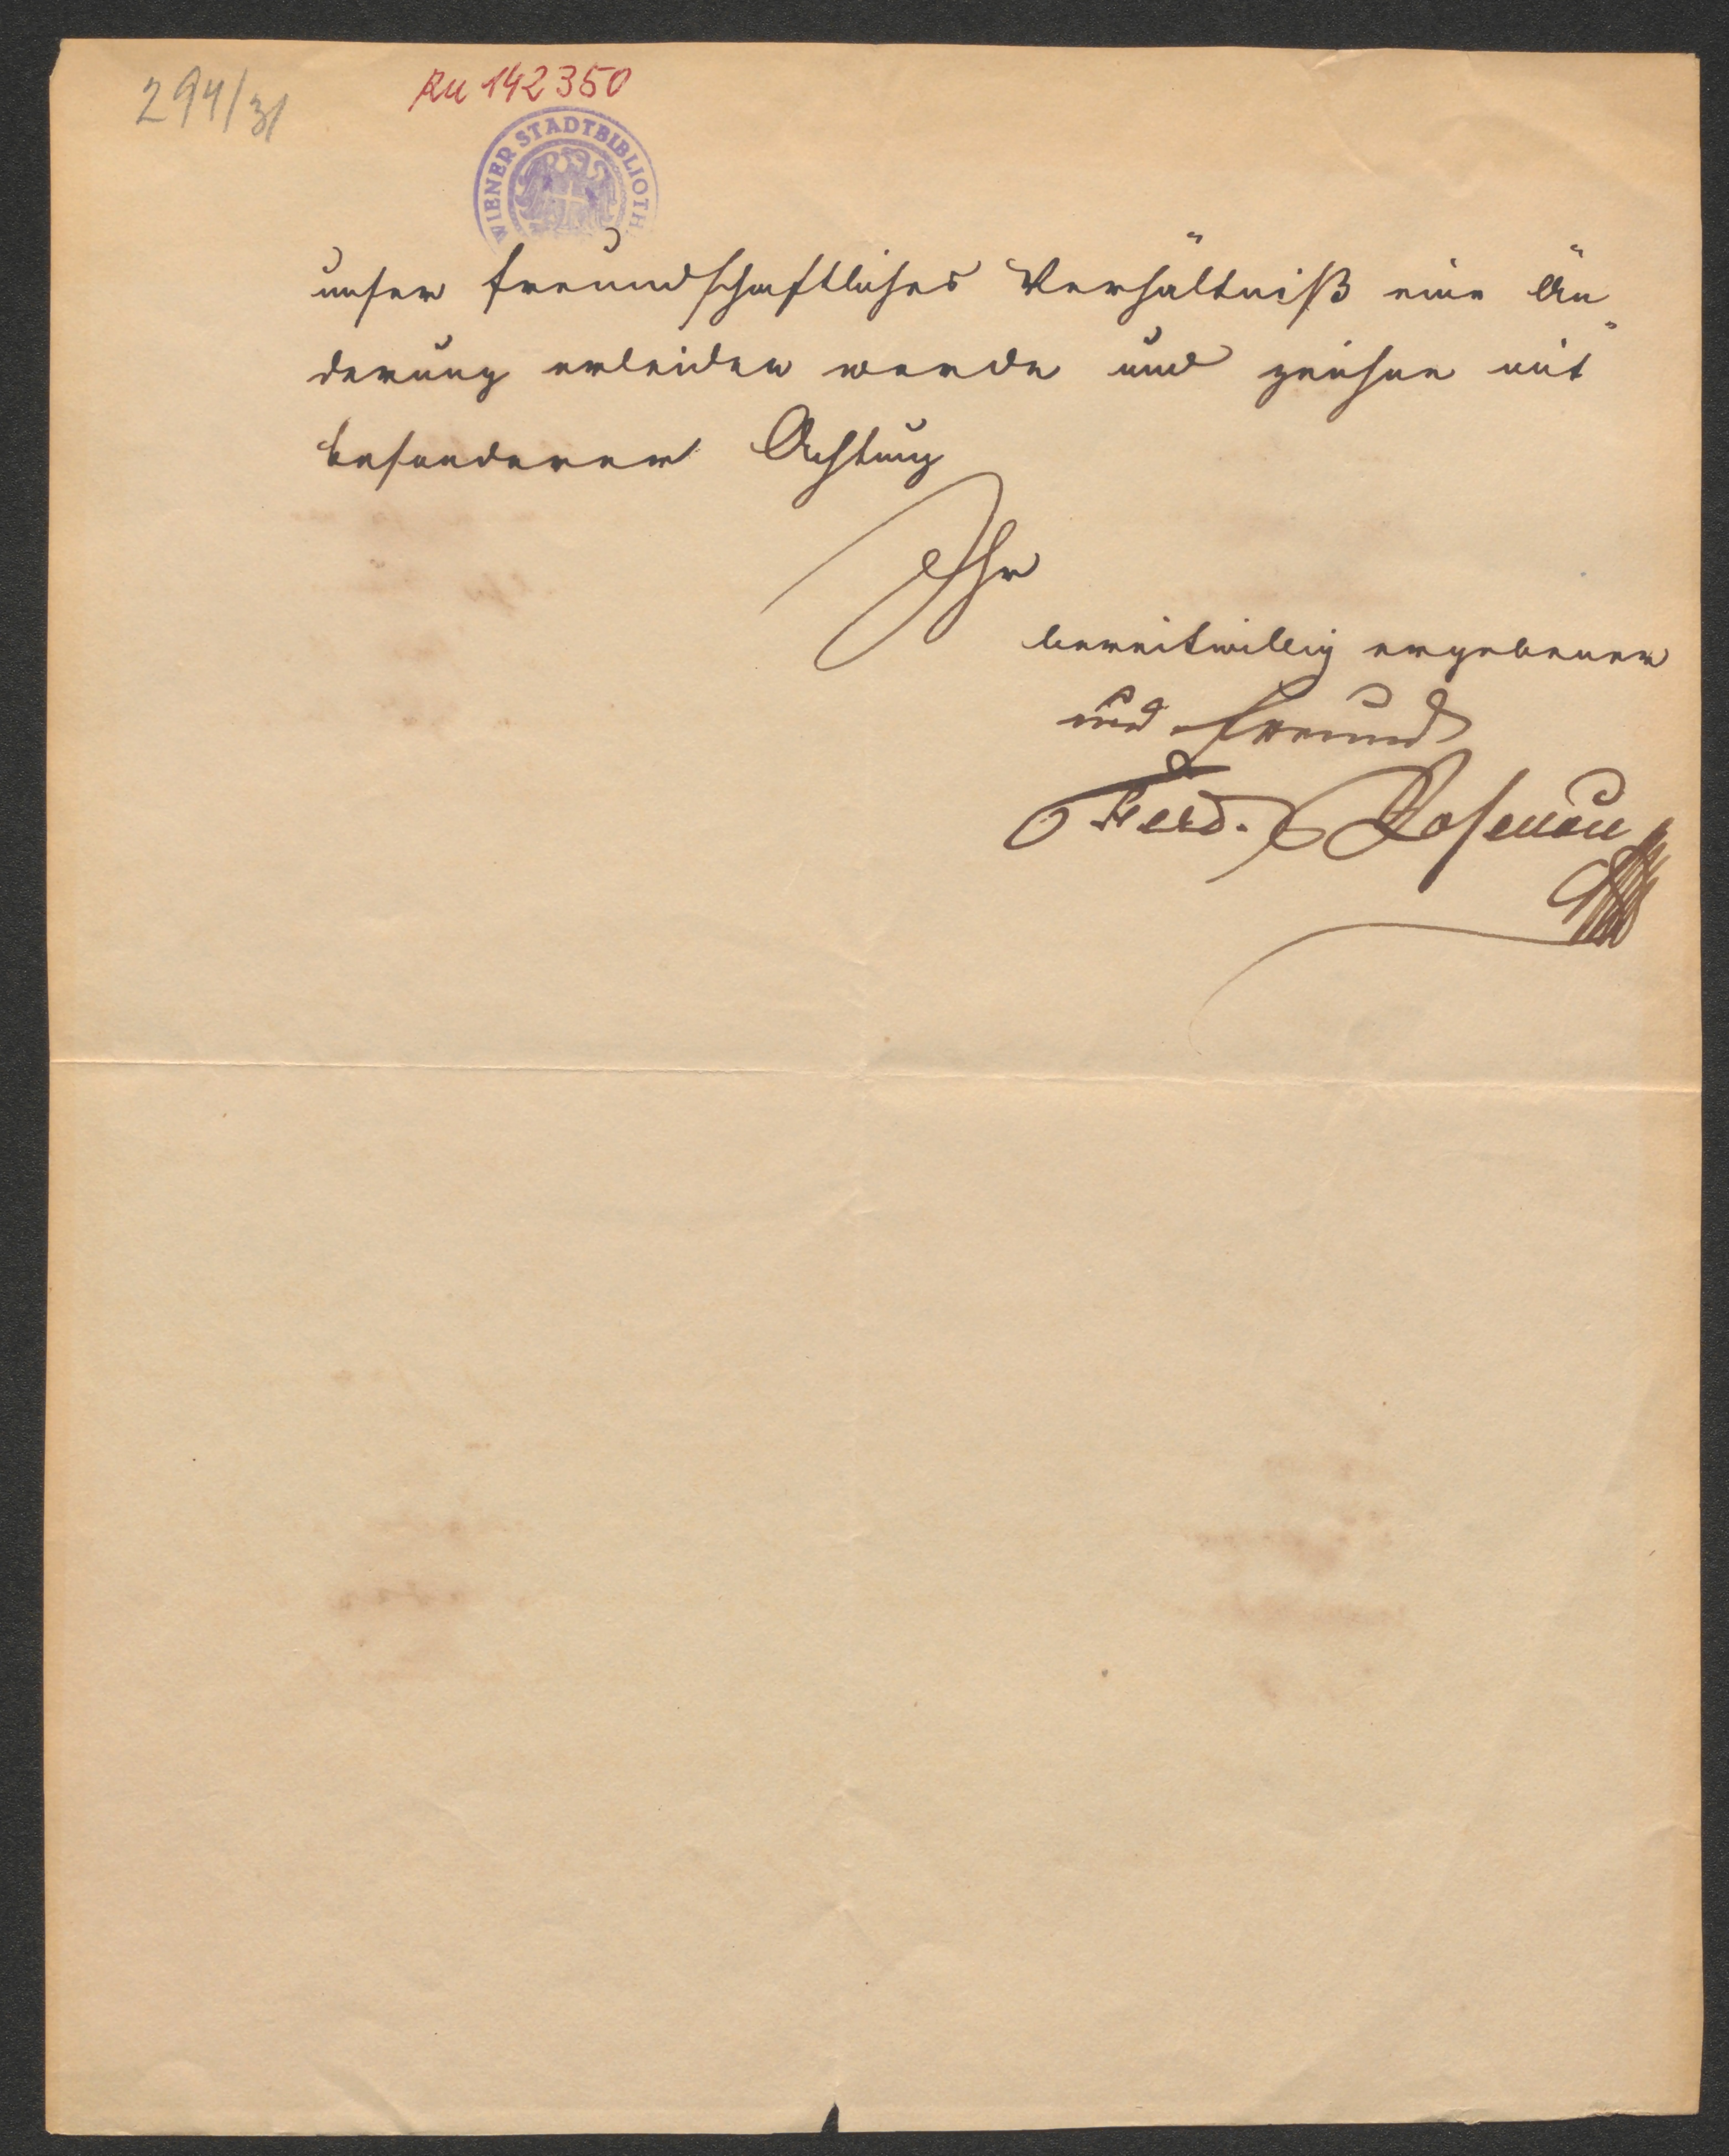 294/31
RU 142350
WIENER STADTBIBLIOTH
unser freundschaftliches Verhältniß eine Än„
derung erleiden werde und zeichne mit
besonderer Achtung
Ihr
bereitwillig ergebener
und Freund
Ferd. Rosenau